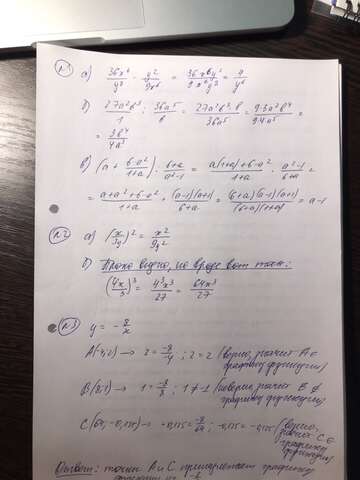 №1 а) 36x⁶/y³ · y²/9x⁶ = 36x⁶y²/9x⁶y³ = 4/y
б) 27a²b³/1 : 36a⁵/b = 27a²b³·b/36a⁵ = 9·3a²b⁴/9·4a⁵ =
= 3b⁴/4a³
в) (a + (6-a²)/(1+a)) · (6+a)/(a²-1) = (a(1+a)+6-a²)/(1+a) · (a²-1)/(6+a) =
= (a+a²+6-a²)/(1+a) · (a-1)(a+1)/(6+a) = (6+a)(a-1)(a+1)/(6+a)(1+a) = a-1
№2 а) (x/3y)² = x²/9y²
б) Плохо видно, но вроде вот так:
(4x/3)³ = 4³x³/27 = 64x³/27
№3 y = -8/x
A(-4;2) → 2 = -8/-4 ; 2 = 2 (верно, значит A ∈
графику функции)
B(8;1) → 1 = -8/8 ; 1 ≠ -1 (неверно, значит B ∉
графику функции)
C(64; -0,125) → -0,125 = -8/64 ; -0,125 = -0,125 (верно,
значит C ∈
графику
функции)
Ответ: точки A и C принадлежат графику